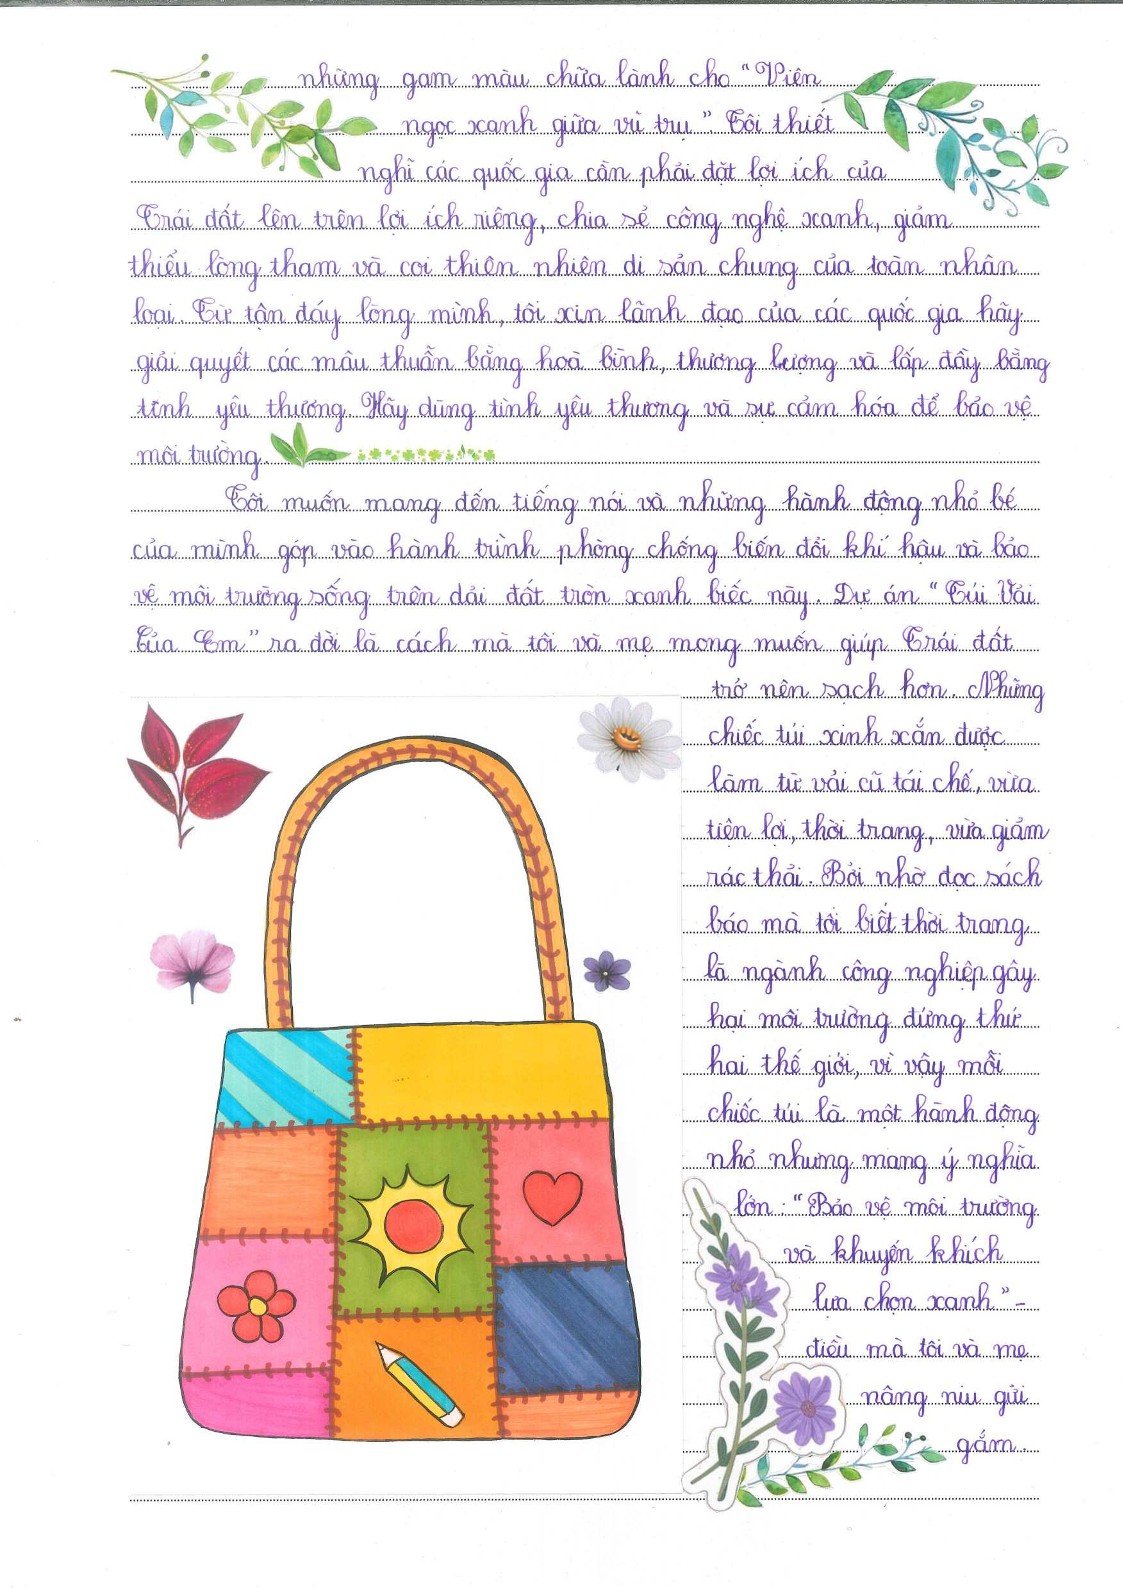 những gam màu chữa lành cho "Viên
ngọc xanh giữa vũ trụ". Tôi thiết
nghĩ các quốc gia cần phải đặt lợi ích của
Trái đất lên trên lợi ích riêng, chia sẻ công nghệ xanh, giảm
thiểu lòng tham và coi thiên nhiên di sản chung của toàn nhân
loại. Từ tận đáy lòng mình, tôi xin lãnh đạo của các quốc gia hãy
giải quyết các mâu thuẫn bằng hoà bình, thương lượng và lấp đầy bằng
tình yêu thương. Hãy dùng tình yêu thương và sự cảm hóa để bảo vệ
môi trường.
Tôi muốn mang đến tiếng nói và những hành động nhỏ bé
của mình góp vào hành trình phòng chống biến đổi khí hậu và bảo
vệ môi trường sống trên dải đất tròn xanh biếc này. Dự án "Túi Vải
Của Em" ra đời là cách mà tôi và mẹ mong muốn giúp Trái đất
trở nên sạch hơn. Những
chiếc túi xinh xắn được
làm từ vải cũ tái chế, vừa
tiện lợi, thời trang, vừa giảm
rác thải. Bởi nhờ đọc sách
báo mà tôi biết thời trang
là ngành công nghiệp gây
hại môi trường đứng thứ
hai thế giới, vì vậy mỗi
chiếc túi là một hành động
nhỏ nhưng mang ý nghĩa
lớn: "Bảo vệ môi trường
và khuyến khích
lựa chọn xanh" -
điều mà tôi và mẹ
nâng niu gửi
gắm.